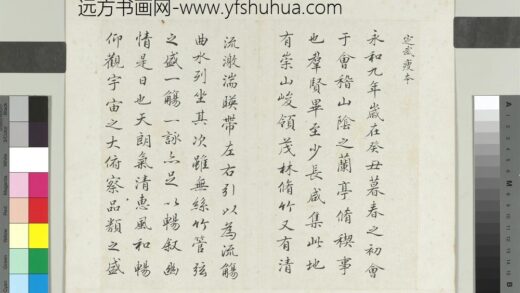 远方书画网-www.yfshuhua.com
定武瘦本
永和九年歲在癸丑暮春之初會
于會稽山陰之蘭亭脩禊事
也羣賢畢至少長咸集此地
有崇山峻領茂林脩竹又有清
流激湍暎帶左右引以為流觴
曲水列坐其次雖無絲竹管弦
之盛一觴一詠亦足以暢叙幽
情是日也天朗氣清惠風和暢
仰觀宇宙之大俯察品類之盛